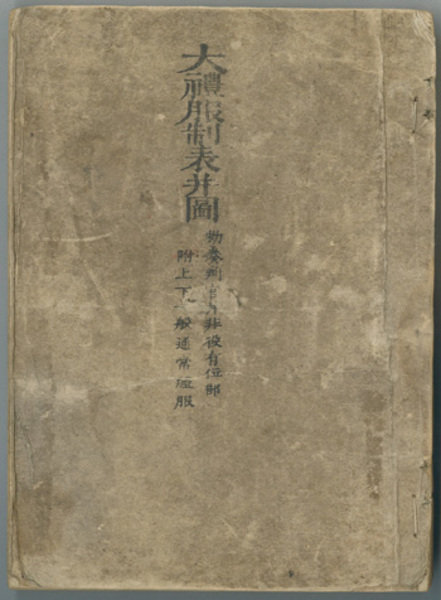 大禮服制表并圖
勅奏判非役有位部
附上下一般通常禮服